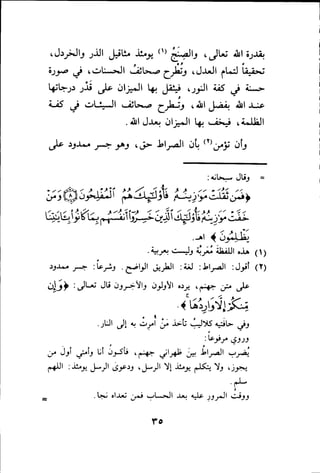 بقدرة الله تعالى، والنسيج (١) يومئذ مثاقيل الذر والخردل،
تحقيقا لتمام العدل، وتطرح صحائف الحسنات، في صورة
حسنة في كفة النور، فيثقل بها الميزان على قدر درجاتها
عند الله، بفضل الله، وتطرح صحائف السيئات في كفة
الظلمة، فيخف بها الميزان بعدل الله.
وأن نؤمن (٢) بأن الصراط حق، وهو جسر ممدود على
= وقال سبحانه:
فمن ثقلت موازينه فأولئك هم المفلحون ومن
خفت موازينه فأولئك الذين خسروا أنفسهم بما كانوا بآياتنا
يظلمون ﴾ الآية.
(١) هذه اللفظة مفردة وليست بجمع.
(٢) أقول: الصراط: لغة: الطريق الواضح. وشرعا: جسر ممدود
على متن جهنم، يرده الأولون والآخرون قال تعالى: ﴿وإن
منكم إلا واردها﴾.
وفي حافتيه كلاليب يخطف من أمرت به إلى النار.
وروى أبو هريرة:
يضرب الصراط بين ظهراني جهنم، فأكون أنا وأمتي أول من
يجوز، ولا يتكلم يومئذ إلا الرسل، ودعوى الرسل يومئذ: اللهم
سلم.
=
٣٥